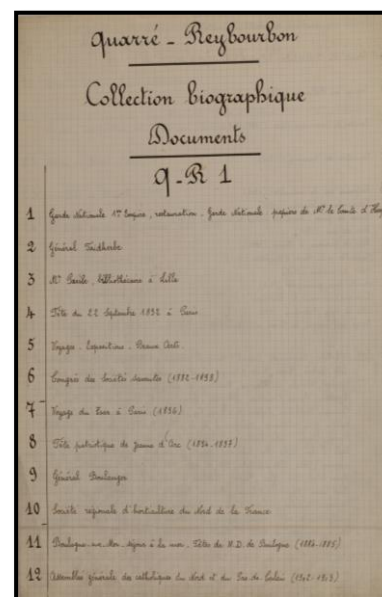 Quarré - Reybourbon
Collection biographique
Documents
Q-R 1
1 Garde Nationale 1er Empire, restauration, Garde Nationale, papiers de Mr le Comte d'
2 Général Faidherbe
3 Mr bibliothécaire à Lille
4 Fête du 22 Septembre 1892 à Paris
5 Voyages. Expositions. Beaux Arts.
6 Congrès des Sociétés savantes (1882-1893)
7 Voyage du Tzar à Paris (1896)
8 Fête patriotique de Jeanne d'Arc (1894-1897)
9 Général Boulanger
10 Société régionale d'horticulture du Nord de la France
11 Boulogne-sur-Mer, séjour à la mer. Fêtes de N.D. de Boulogne (1884-1885)
12 Assemblée générale des catholiques du Nord et du Pas de Calais